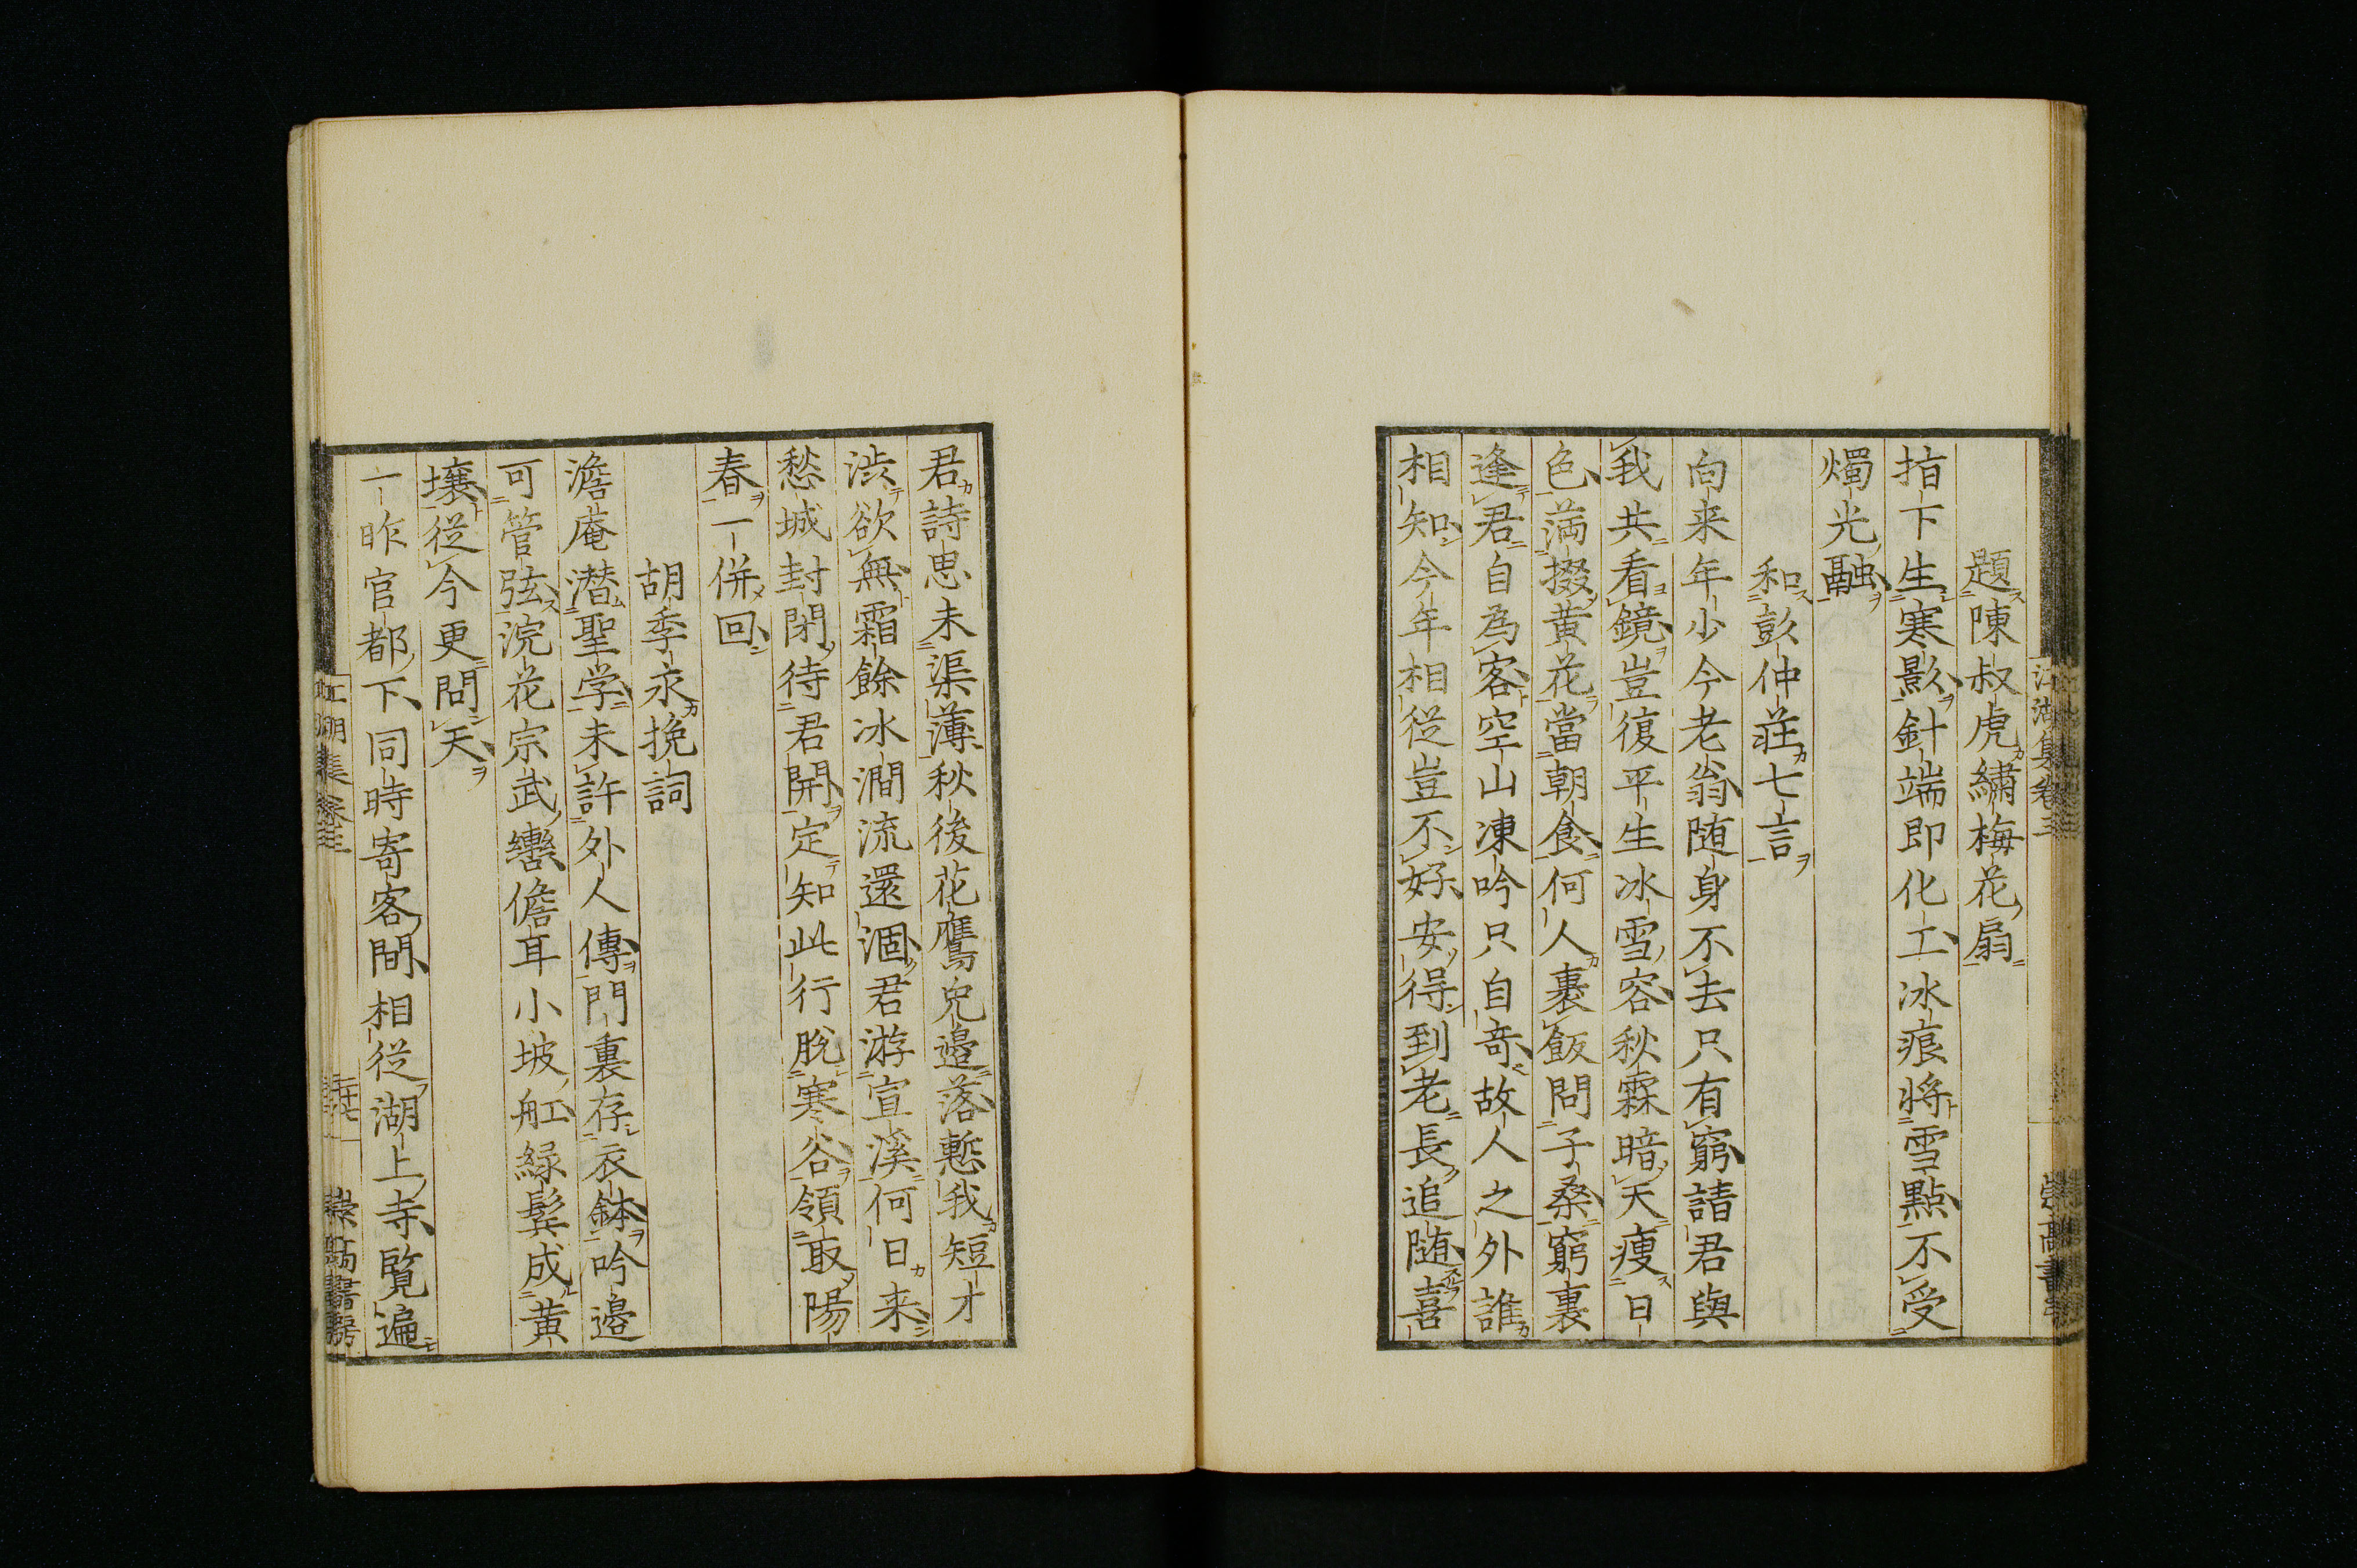 題陳叔虎繡梅花扇
指下生寒影針端即化工冰痕將雪點不受
燭光融
和彭仲莊七言
向来年少今老翁随身不去只有窮請君與
我共看鏡豈復平生冰雪容秋霖暗天痩日
色満掇黄花當朝食何人裹飯問子桑窮裏
逢君自為客空山凍吟只自奇故人之外誰
相知今年相従豈不好安得到老長追随喜
江湖集卷三
君詩思未渠薄秋後花鷹兒邉落慙我短才
渋欲無霜餘冰澗流還涸君游宣溪何日来
愁城封閉待君開定知此行脱寒谷領取陽
春一併回
胡季永挽詞
澹庵潜聖学未許外人傳門裏存衣鉢吟邉
可管弦浣花宗武轡儋耳小坡舡緑鬂成黄
壌従今更問天
一昨官都下同時寄客間相従湖上寺覧遍
江湖集卷三
崇高書房